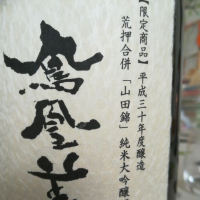 【限定商品】平成三十年度醸造
荒押合併「山田錦」純米大吟醸
鳳凰美